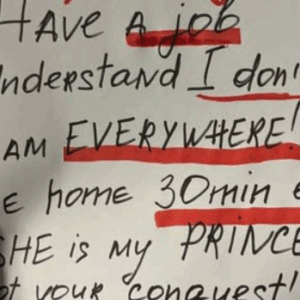 HAVE A job
understand I don'
AM EVERYWHERE!
E home 30min
SHE is my PRINCE
ot your conquest!